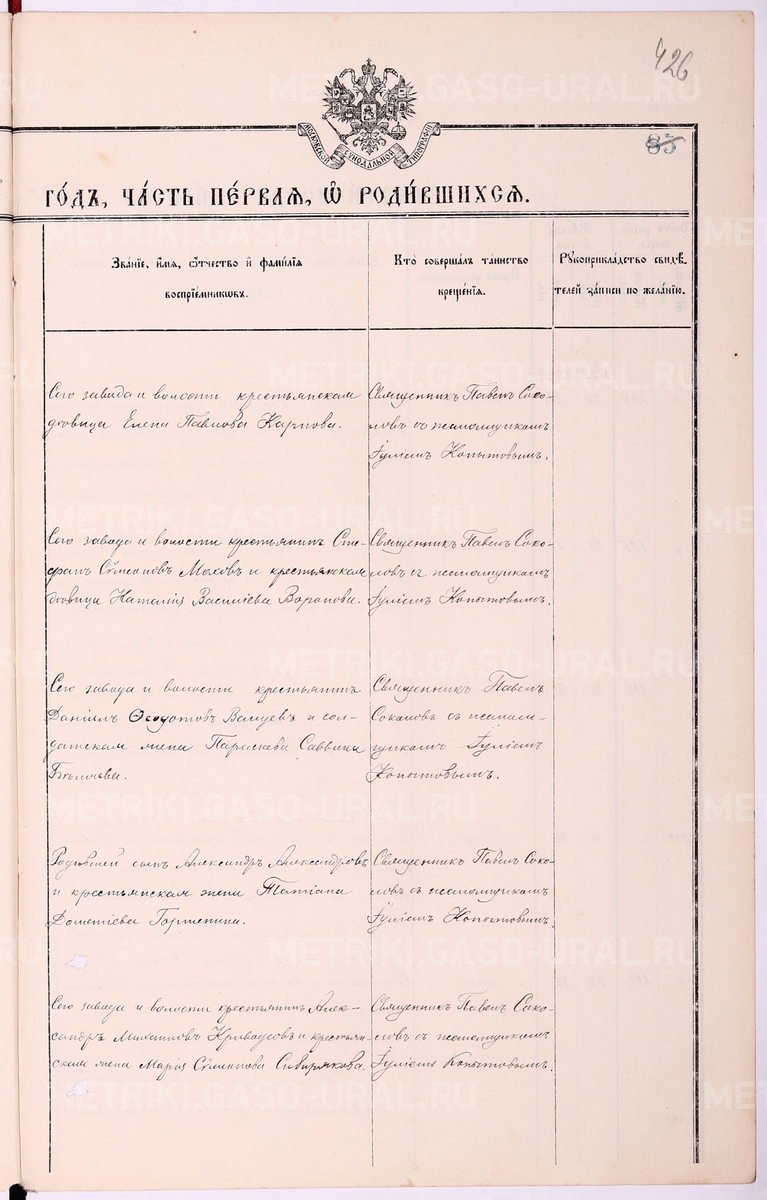 426
85
МОСКОВСКОЙ СѴНОДАЛЬНОЙ ТИПОГРАФІИ
го́дъ, ча́сть пе́рваѧ, ѡ҆ роди́вшихсѧ.
Зва́нїе, и҆́мѧ, ѻ҆́тчество и҆ фами́лїѧ
воспрїе́мникѡвъ.
Кто̀ соверша́лъ та́инство
креще́нїѧ.
Рꙋкоприкла́дство свидѣ́-
телей за́писи по жела́нїю.
Сего завода и волости крестьянская
дѣвица Елена Павлова Карпова.
Священникъ Павелъ Соко-
ловъ съ псаломщикомъ
Іуліемъ Копытовымъ.
Сего завода и волости крестьянинъ Сте-
фанъ Сѵмеоновъ Моховъ и крестьянская
дѣвица Наталія Василіева Воронова.
Священникъ Павелъ Соко-
ловъ съ псаломщикомъ
Іуліемъ Копытовымъ.
Сего завода и волости крестьянинъ
Даніилъ Ѳеодотовъ и сол-
датская жена Параскева Саввина
Священникъ Павелъ
Соколовъ съ псалом-
щикомъ Іуліемъ
Копытовымъ.
сынъ Александръ Александровъ
и крестьянская жена Татіана
Дометіева
Священникъ Павелъ Соко-
ловъ съ псаломщикомъ
Іуліемъ Копытовымъ.
Сего завода и волости крестьянинъ Алек-
сандръ Михаиловъ Кривоусовъ и крестьян-
ская жена Марія Сѵмеонова Сибирякова.
Священникъ Павелъ Соко-
ловъ съ псаломщикомъ
Іуліемъ Копытовымъ.
METRIKI.GASO-URAL.RU